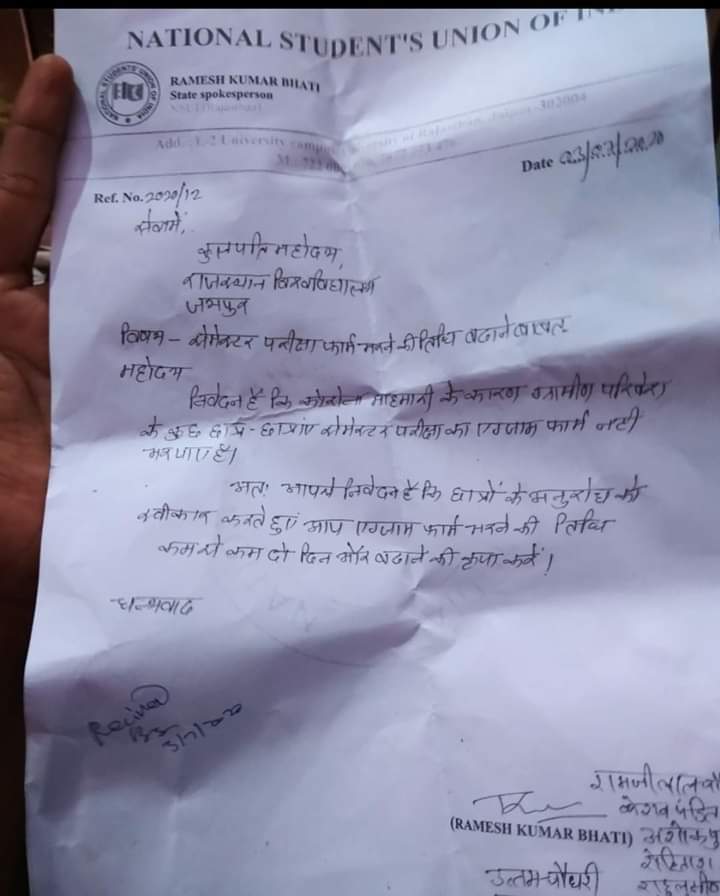 NATIONAL STUDENT'S UNION OF IN
RAMESH KUMAR BHATI
State spokesperson
NSUI (Rajasthan)
Add. : L-2 University campus, University of Rajasthan, Jaipur-302004
M.: 723
Date 03/07/2020
Ref. No. 2020/12
सेवामें,
कुलपति महोदय,
राजस्थान विश्वविद्यालय
जयपुर
विषय - सेमेस्टर परीक्षा फार्म भरने की तिथि बढाने बाबत
महोदय
निवेदन है कि कोरोना माहमारी के कारण ग्रामीण परिवेश
के कुछ छात्र - छात्राएं सेमेस्टर परीक्षा का एग्जाम फार्म नही
भर पाए है।
अतः आपसे निवेदन है कि छात्रों के अनुरोध को
स्वीकार करते हुएं आप एग्जाम फार्म भरने की तिथि
कम से कम दो दिन और बढाने की कृपा करें।
धन्यवाद
3/7/2020
रामजीलाल
केशव पंडित
(RAMESH KUMAR BHATI)
उत्तम चौधरी